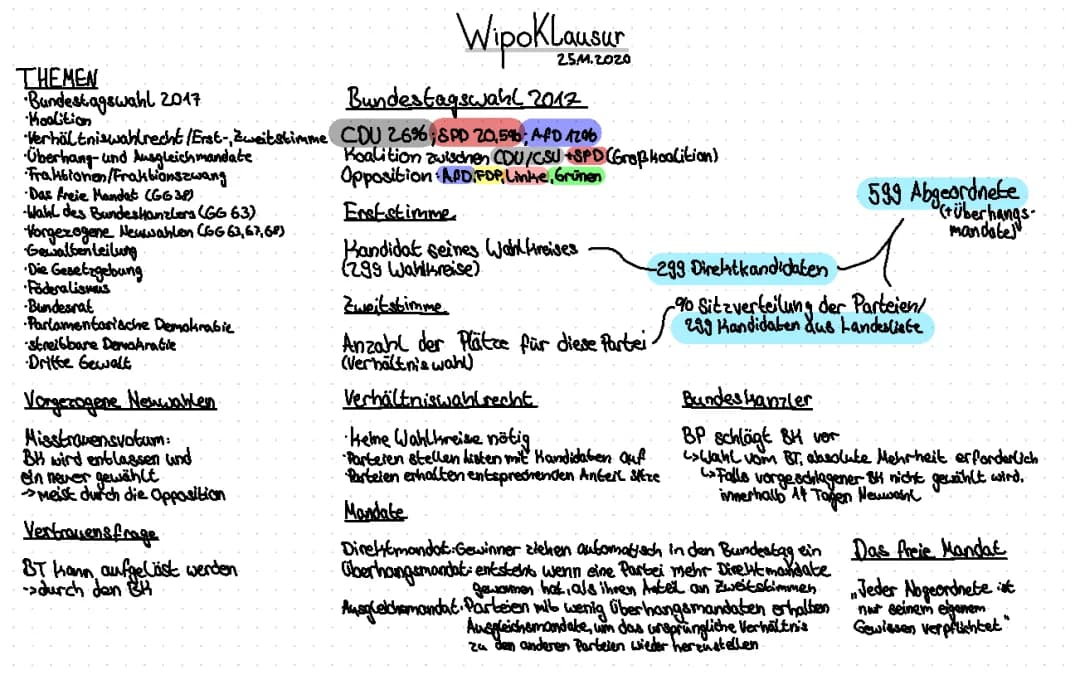 WipoKlausur
25.11.2020
THEMEN
·Bundestagswahl 2017
·Koalition
·Verhältniswahlrecht/Erst-,Zweitstimme
·Überhang- und Ausgleichmandate
·Fraktionen/Fraktionszwang
·Das freie Mandat (GG 38)
·Wahl des Bundeskanzlers (GG 63)
·Vorgezogene Neuwahlen (GG 63,67,68)
·Gewaltenteilung
·Die Gesetzgebung
·Föderalismus
·Bundesrat
·Parlamentarische Demokratie
·streitbare Demokratie
·Dritte Gewalt
Bundestagswahl 2017
CDU 26%; SPD 20,5%; AfD 12%
Koalition zwischen CDU/CSU + SPD (Großkoalition)
Opposition: AfD, FDP, Linke, Grünen
Erststimme
Kandidat seines Wahlkreises
(299 Wahlkreise)
299 Direktkandidaten
599 Abgeordnete
(+Überhangs-
mandate)
Zweitstimme
Anzahl der Plätze für diese Partei
(Verhältniswahl)
% Sitzverteilung der Parteien/
299 Kandidaten aus Landesliste
Vorgezogene Neuwahlen
Misstrauensvotum:
BK wird entlassen und
ein neuer gewählt
->meist durch die Opposition
Vertrauensfrage
BT kann aufgelöst werden
->durch den BK
Verhältniswahlrecht
·keine Wahlkreise nötig
·Parteien stellen Listen mit Kandidaten auf
·Parteien erhalten entsprechenden Anteil Sitze
Bundeskanzler
BP schlägt BK vor
↳Wahl vom BT, absolute Mehrheit erforderlich
↳Falls vorgeschlagener BK nicht gewählt wird,
innerhalb 14 Tagen Neuwahl
Mandate
Direktmandat: Gewinner ziehen automatisch in den Bundestag ein
Überhangsmandat: entsteht wenn eine Partei mehr Direktmandate
gewonnen hat, als ihren Anteil an Zweitstimmen
Ausgleichsmandat: Parteien mit wenig Überhangsmandaten erhalten
Ausgleichsmandate, um das ursprüngliche Verhältnis
zu den anderen Parteien wieder herzustellen
Das freie Mandat
„Jeder Abgeordnete ist
nur seinem eigenem
Gewissen verpflichtet"